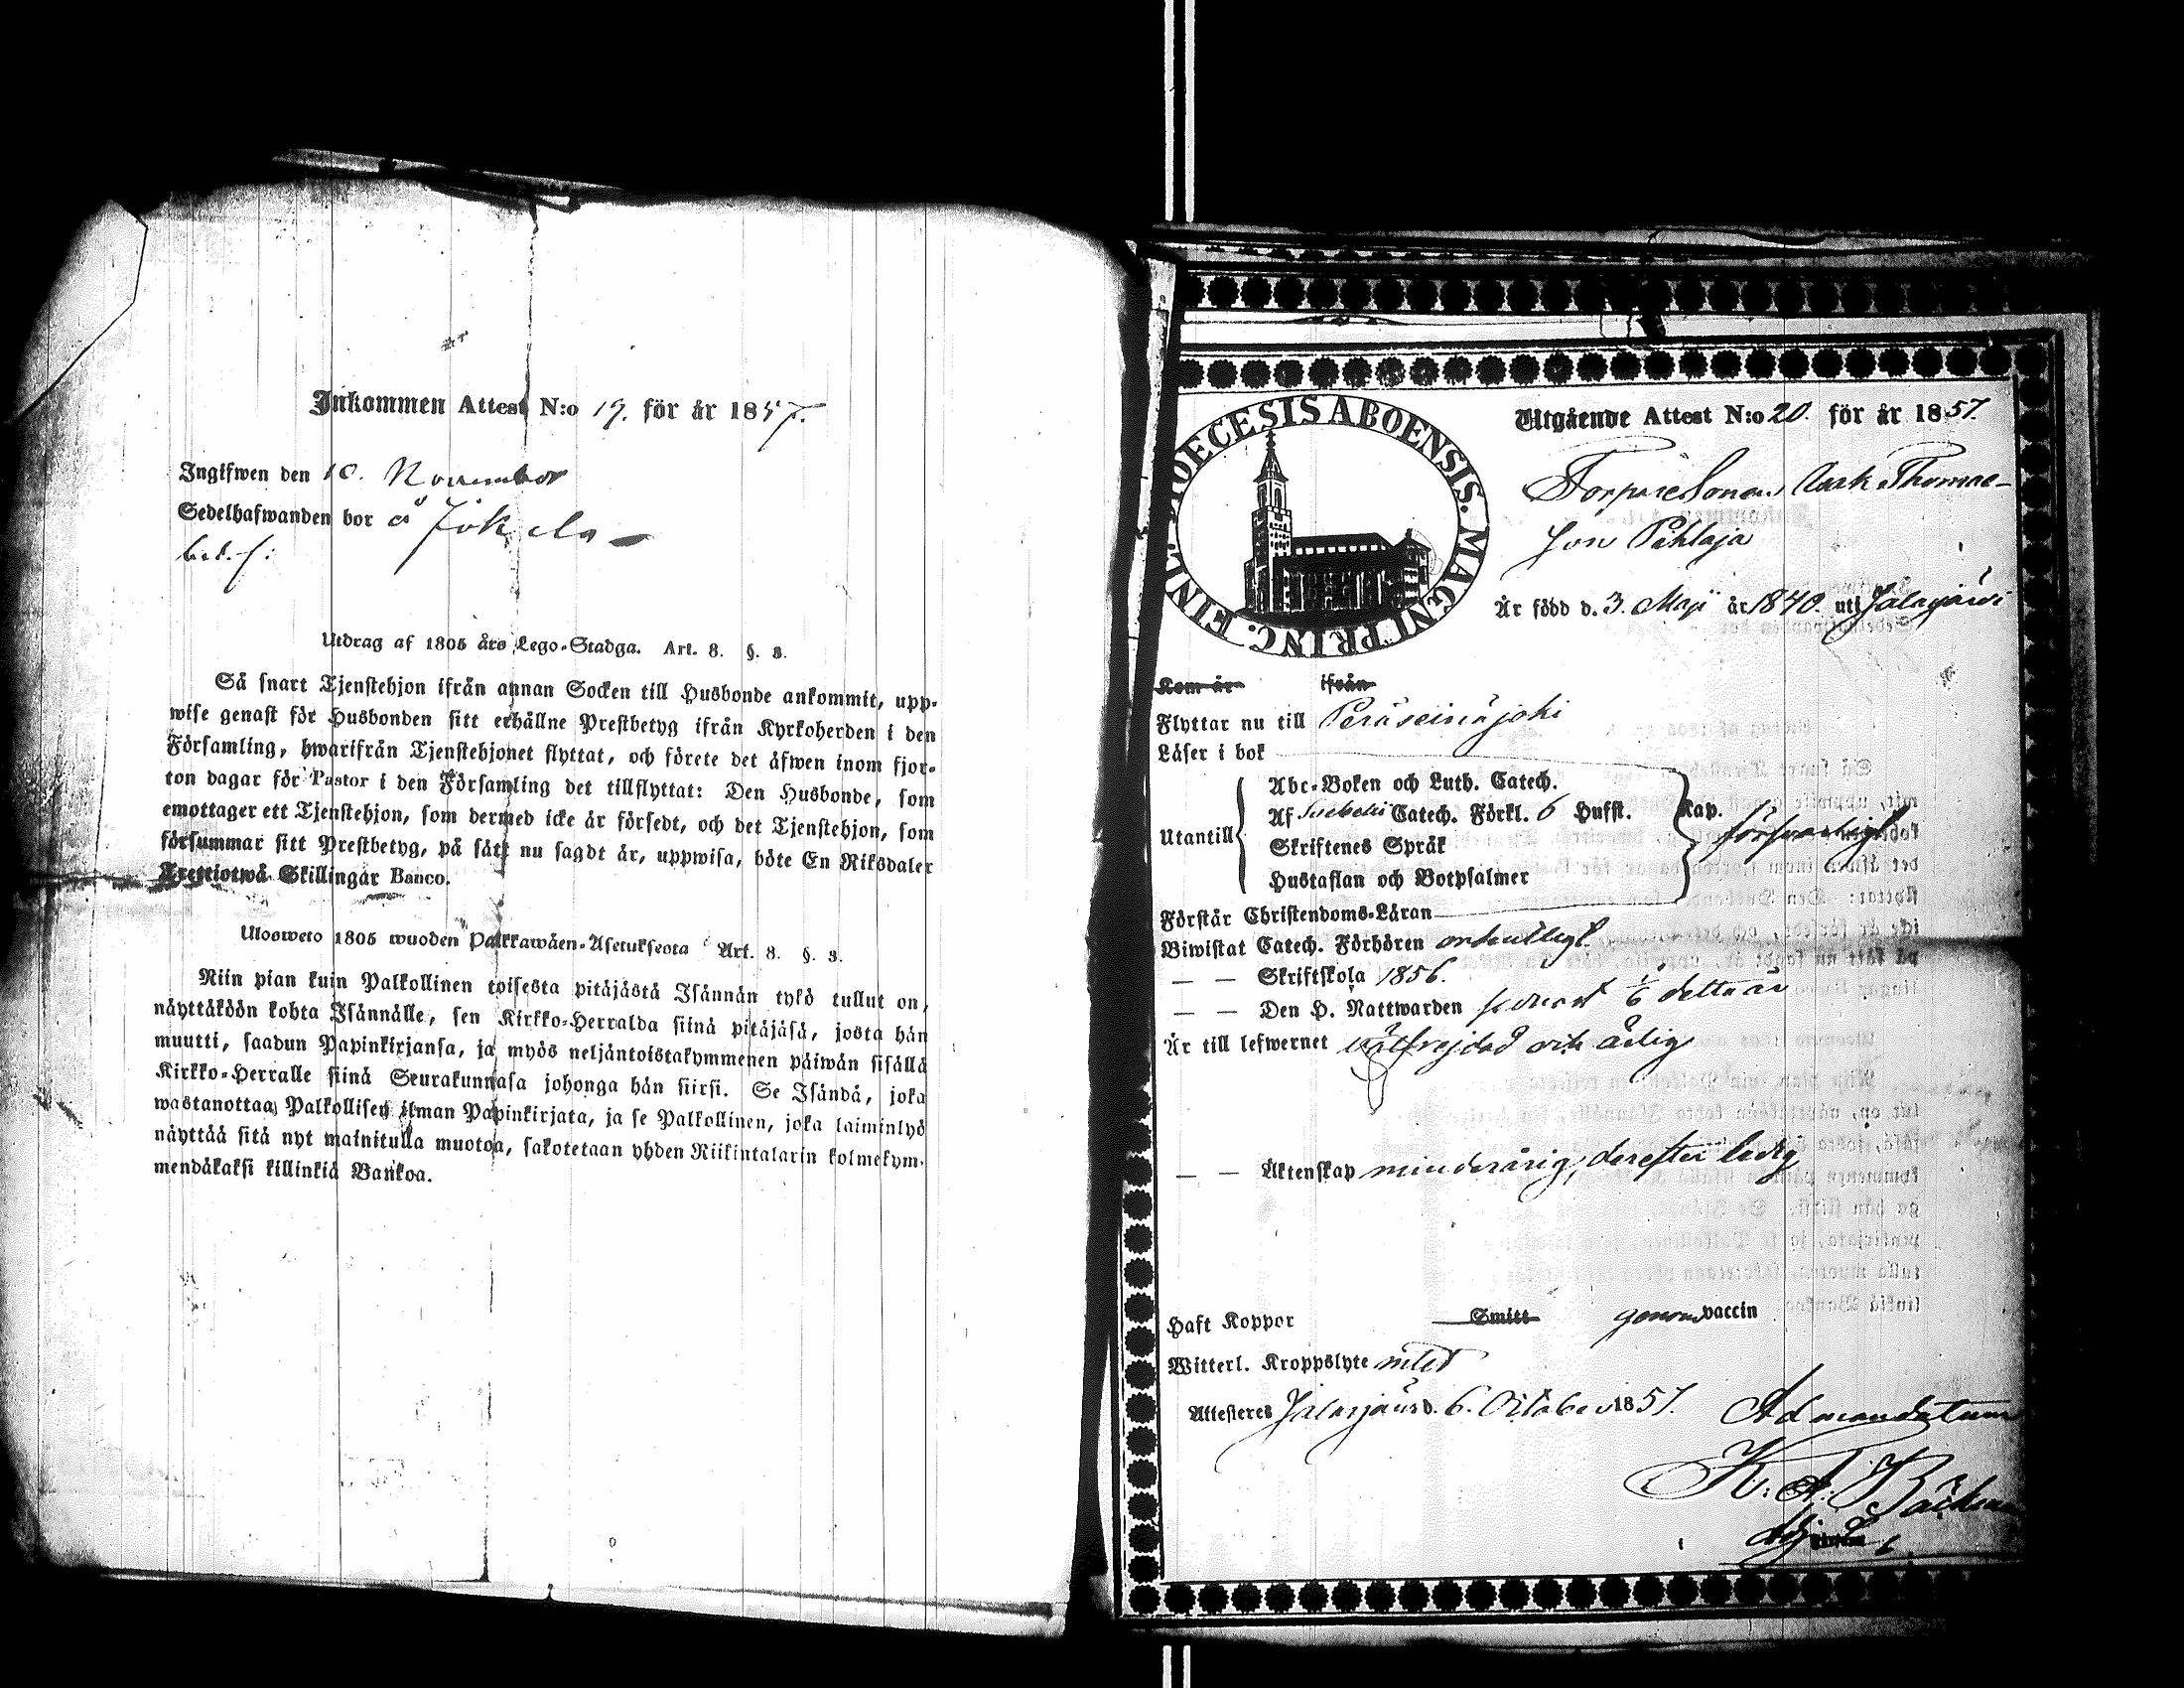 Inkommen Attest N:o 19. för år 1857.
Ingifwen den 10. November
Sedelhafwanden bor å Jokela
Utdrag af 1805 års Lego-Stadga. Art. 8. §. 3.
Så snart Tjenstehjon ifrån annan Socken till Husbonde ankommit, upp-
wise genast för Husbonden sitt erhållne Prestbetyg ifrån Kyrkoherden i den
Församling, hwarifrån Tjenstehjonet flyttat, och förete det äfwen inom fjor-
ton dagar för Pastor i den Församling det tillflyttat: Den Husbonde, som
emottager ett Tjenstehjon, som dermed icke är försedt, och det Tjenstehjon, som
försummar sitt Prestbetyg, på sätt nu sagdt är, uppwisa, böte En Riksdaler
Trettiotwå Skillingar Banco.
Ulosweto 1805 wuoden Palkkawäen-Asetuksesta Art. 8. §. 3.
Niin pian kuin Palkollinen toisesta pitäjästä Isännän tykö tullut on,
näyttäköön kohta Isännälle, sen Kirkko-Herralda siinä pitäjäsä, josta hän
muutti, saadun Papinkirjansa, ja myös neljäntoistakymmenen päiwän sisällä
Kirkko-Herralle siinä Seurakunnasa johonga hän siirsi. Se Isändä, joka
wastanottaa Palkollisen ilman Papinkirjata, ja se Palkollinen, joka laiminlyö
näyttää sitä nyt mainitulla muotoa, sakotetaan yhden Riikintalarin kolmekym-
mendäkaksi killinkiä Bankoa.
DIOECESIS ABOENSIS. MAGNI PRINC. FINL.
Utgående Attest N:o 20. för år 1857.
Torparesonen Isak Thomas-
son Pihlaja
Är född d. 3. Maji år 1840. uti Jalasjärvi
Kom år ifrån
Flyttar nu till Peräseinäjoki
Läser i bok
Abc-Boken och Luth. Catech.
Af Svebelii Catech. Förkl. 6 Hufst. Kap.
Utantill försvarligt
Skriftenes Språk
Hustaflan och Botpsalmer
Förstår Christendoms-Läran
Biwistat Catech. Förhören ordentligt
— — Skriftskola 1856.
— — Den H. Nattwarden senast 1/6 detta år
Är till lefwernet välfrejdad och ärlig
— — Äktenskap minderårig, derefter ledig
Haft Koppor Smitt genom vaccin
Witterl. Kroppslyte intet
Attesteres Jalasjärvi d. 6. October 1857. Ad mandatum
K. A. Bäckman